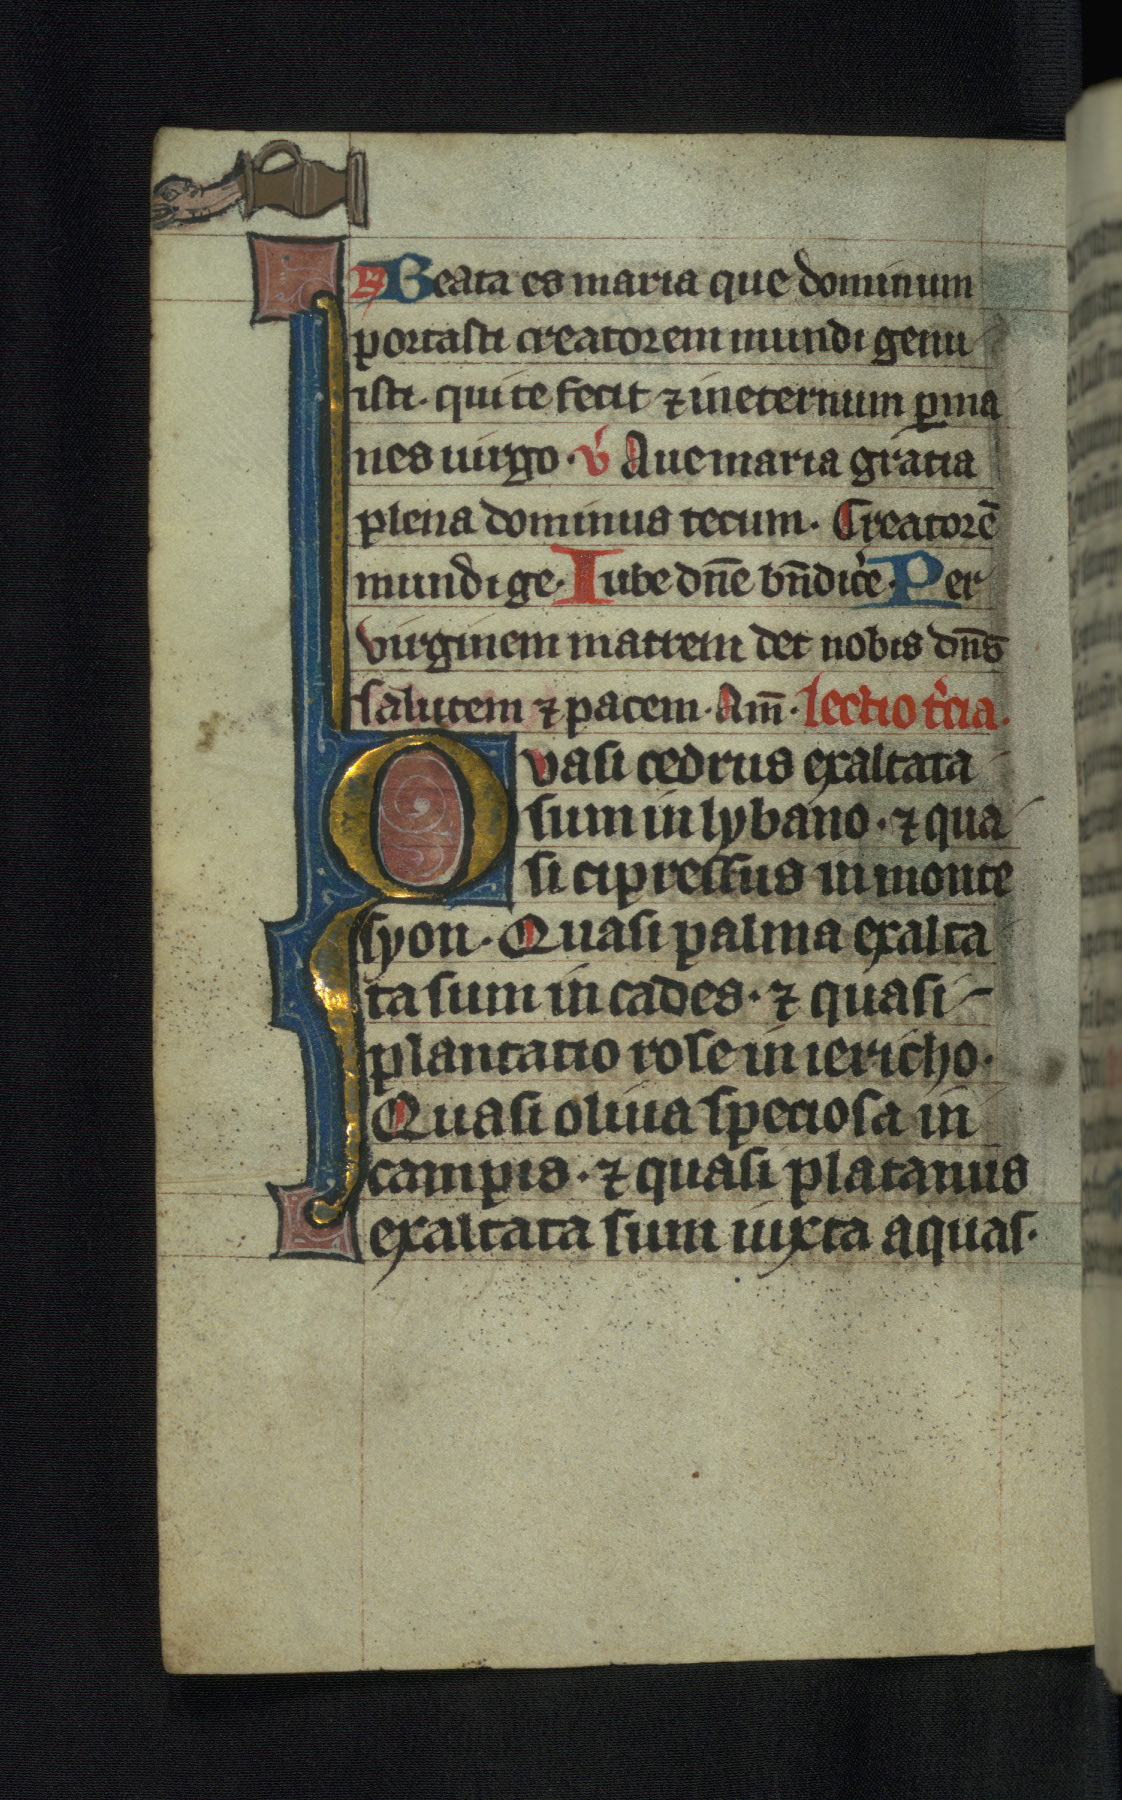 R Beata es maria que dominum
portasti creatorem mundi genu
isti. qui te fecit ⁊ ineternum ꝑma
nes uirgo. v̕ Aue maria gratia
plena dominus tecum. Creatorē
mundi ge. Iube dn̄e bn̄dic̕e. Per
virginem matrem det nobis dn̄s
salutem ⁊ pacem. Am̄. lectio t̕cia.
Qvasi cedrus exaltata
sum in lybano. ⁊ qua
si cipressus in monte
syon. Quasi palma exalta
ta sum in cades. ⁊ quasi
plantatio rose in iericho.
Quasi oliua speciosa in
campis. ⁊ quasi platanus
exaltata sum iuxta aquas.